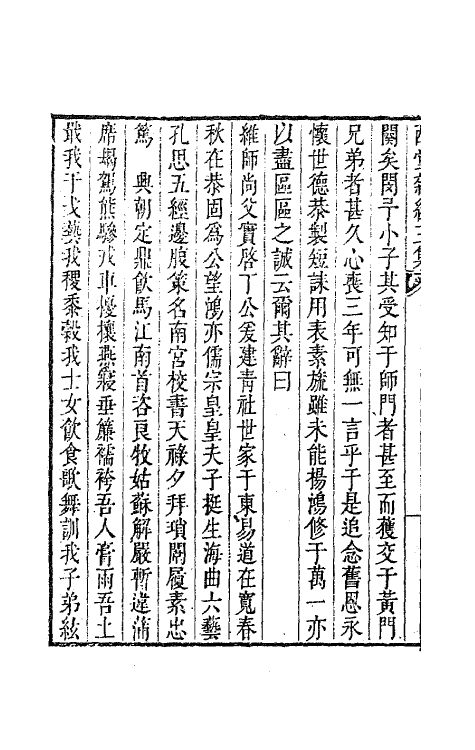 闕矣閔予小子其受知于師門者甚至而獲交于黃門
兄弟者甚久心喪三年可無一言乎于是追念舊恩永
懷世德恭製短誄用表素旐雖未能揚鴻修于萬一亦
以盡區區之誠云爾其辭曰
維師尚父實啓丁公爰建青社世家于東易道在寬春
秋在恭固爲公望鴻亦儒宗皇皇夫子挺生海曲六藝
孔思五經邊腹策名南宮校書天祿夕拜瑣闈履素忠
篤　興朝定鼎飲馬江南首咨良牧姑蘇解嚴暫違蒲
席蝎駕熊驂戎車擾攘燕寢垂簾襦袴吾人膏雨吾土
戢我干戈藝我稷黍穀我士女飲食歌舞訓我子弟絃